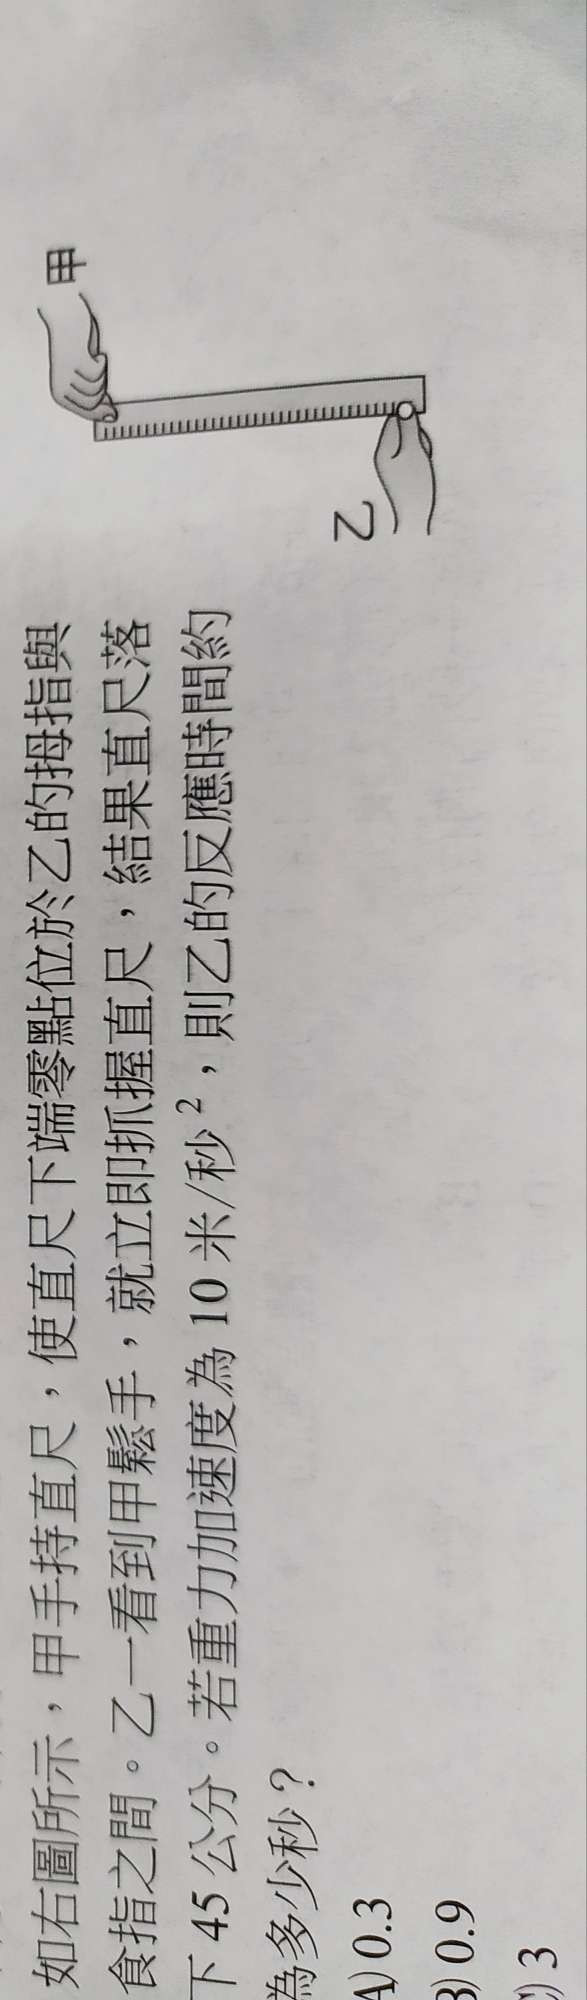 如右圖所示，甲手持直尺，使直尺下端零點位於乙的拇指與
食指之間。乙一看到甲鬆手，就立即抓握直尺，結果直尺落
下 45 公分。若重力加速度為 10 米/秒²，則乙的反應時間約
為多少秒？
A) 0.3
B) 0.9
) 3
甲
乙